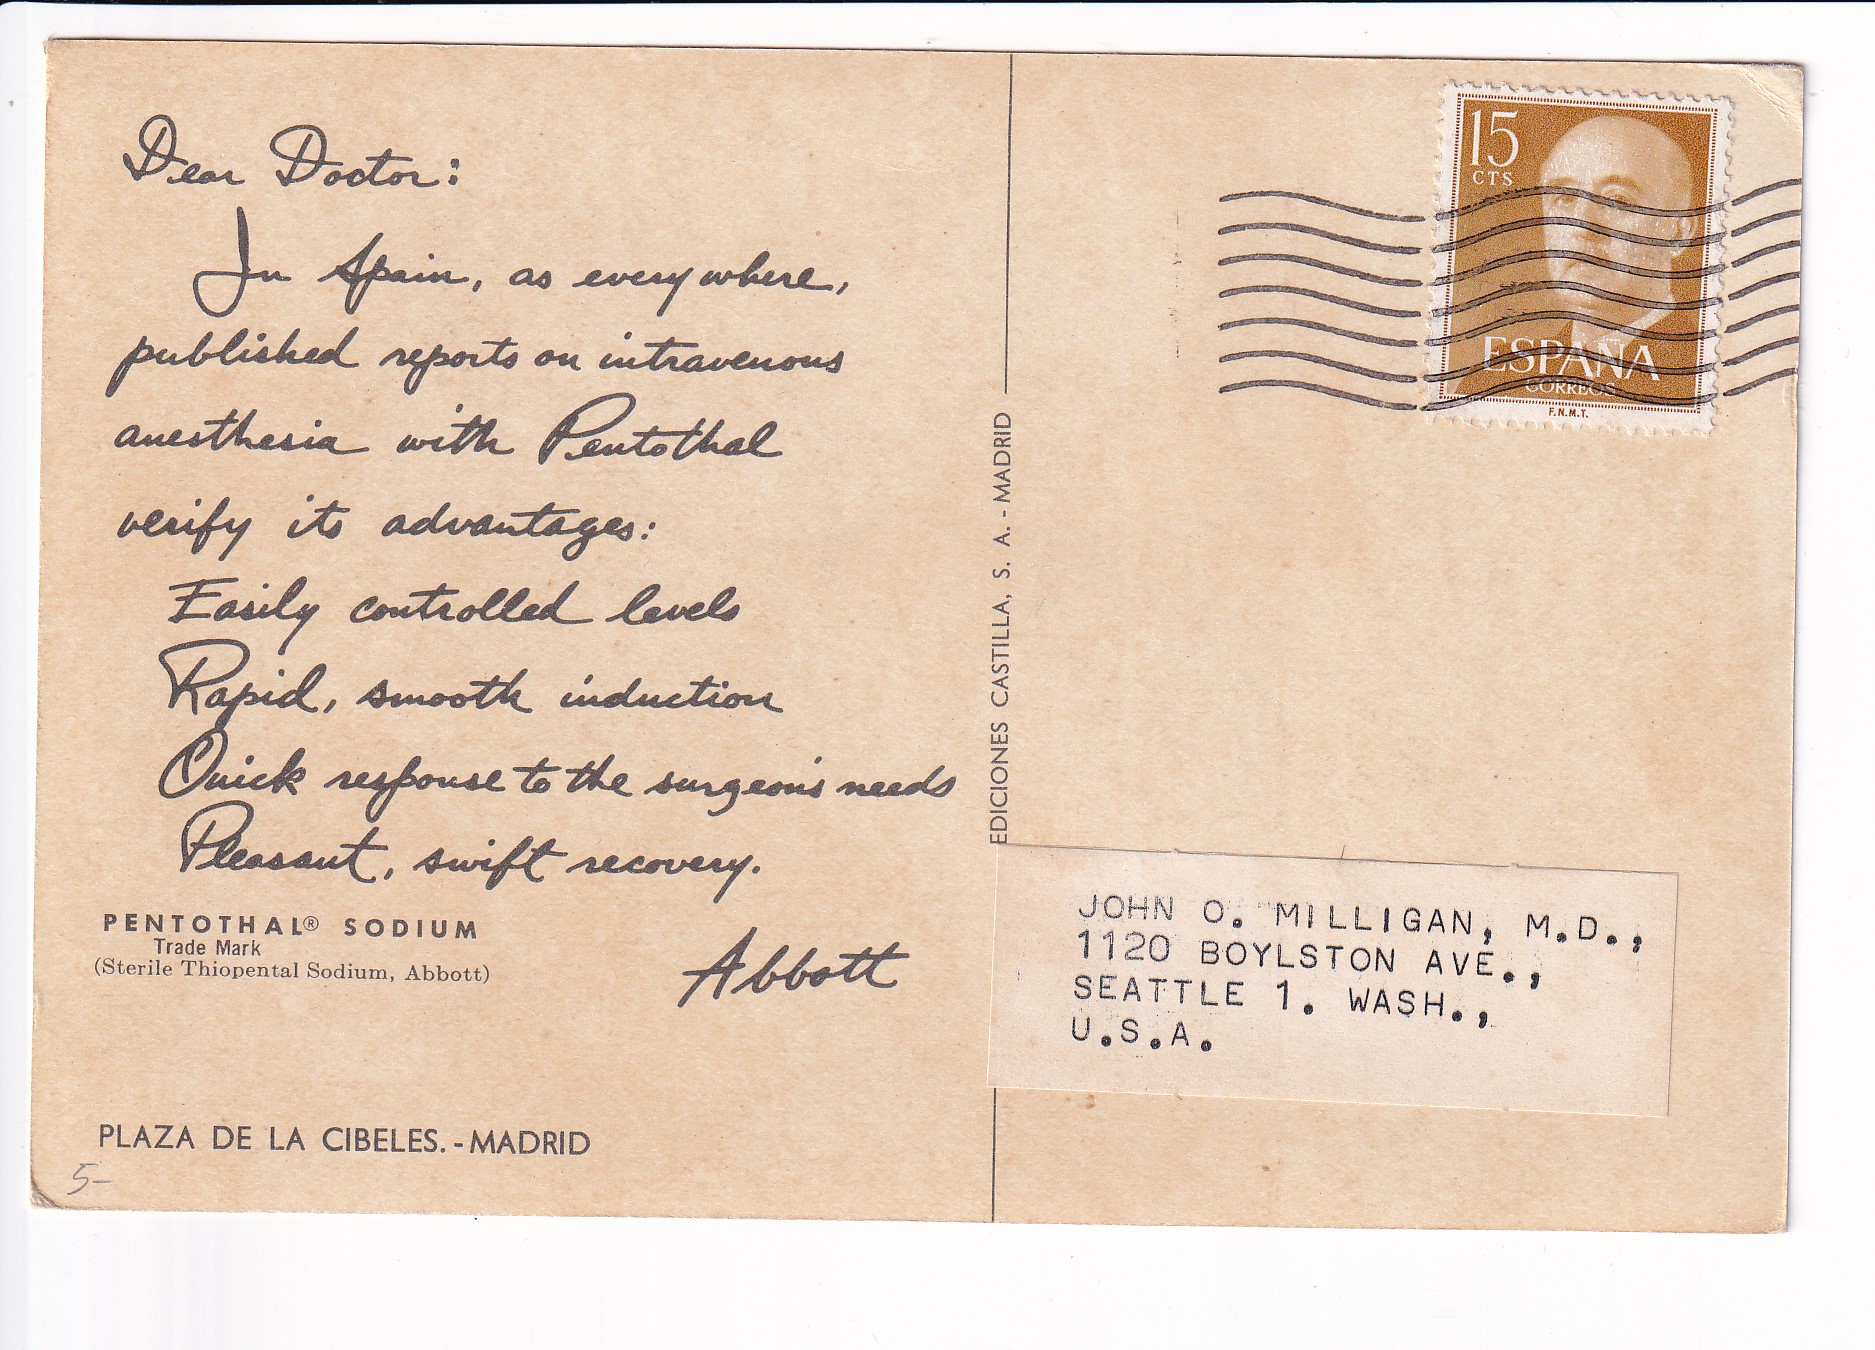 Dear Doctor:
In Spain, as everywhere,
published reports on intravenous
anesthesia with Pentothal
verify its advantages:
Easily controlled levels
Rapid, smooth induction
Quick response to the surgeon's needs
Pleasant, swift recovery.
PENTOTHAL® SODIUM
Trade Mark
(Sterile Thiopental Sodium, Abbott)
Abbott
PLAZA DE LA CIBELES. - MADRID
5-
EDICIONES CASTILLA, S. A. - MADRID
15
CTS
ESPAÑA
CORREOS
F.N.M.T.
JOHN O. MILLIGAN, M.D.,
1120 BOYLSTON AVE.,
SEATTLE 1. WASH.,
U.S.A.